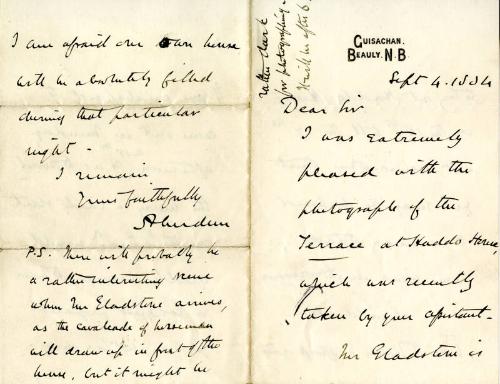 GUISACHAN.
BEAULY. N.B
Sept 4. 1884
Dear Sir
I was extremely
pleased with the
photographs of the
Terrace at Haddo House,
which was recently
taken by your assistant -
Mr Gladstone is
I am afraid our own house
will be absolutely filled
during that particular
night -
I remain
Yours faithfully
Aberdeen
P.S. There will probably be
a rather interesting scene
when Mr Gladstone arrives,
as the cavalcade of horsemen
will draw up in front of the
house, but it might be
rather dark
for photographing -
It will be after 6.